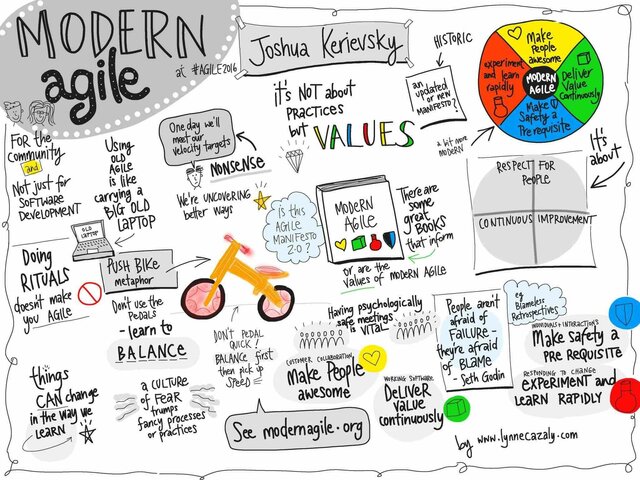 MODERN
agile
at #AGILE2016
Joshua Kerievsky
HISTORIC
it's NOT about
PRACTICES
but VALUES
an
updated
or new
MANIFESTO
?
a bit more
MODERN
Make
People
awesome
experiment
and learn
rapidly
MODERN
AGILE
DELIVER
Value
Continuously
Make
Safety a
Pre requisite
It's
about
RESPECT FOR
PEOPLE
CONTINUOUS IMPROVEMENT
FOR the
community
and
Not just for
SOFTWARE
DEVELOPMENT
Using
OLD
AGILE
is like
carrying a
BIG OLD
LAPTOP
OLD
LAPTOP
One day we'll
meet our
velocity targets
NONSENSE
We're UNCOVERING
better ways
is this
AGILE
MANIFESTO
2.0?
MODERN
AGILE
There are
some
great
BOOKS
that inform
or are the
values of MODERN AGILE
Doing
RITUALS
doesn't make
you AGILE
PUSH BIKE
metaphor
Don't use the
PEDALS
- learn to
BALANCE
DON'T PEDAL
QUICK!
BALANCE first
then pick up
SPEED
Having psychologically
safe meetings
is VITAL
People aren't
afraid of
FAILURE -
they're afraid
of BLAME
- Seth Godin
eg
Blameless
Retrospectives
INDIVIDUALS + INTERACTIONS
Make safety a
PRE REQUISITE
CUSTOMER COLLABORATION
Make People
awesome
WORKING SOFTWARE
DELIVER
value
continuously
RESPONDING TO CHANGE
EXPERIMENT and
LEARN RAPIDLY
things
CAN change
in the way we
LEARN
a CULTURE
of FEAR
trumps
fancy processes
or practices
See modernagile.org
by www.lynnecazaly.com